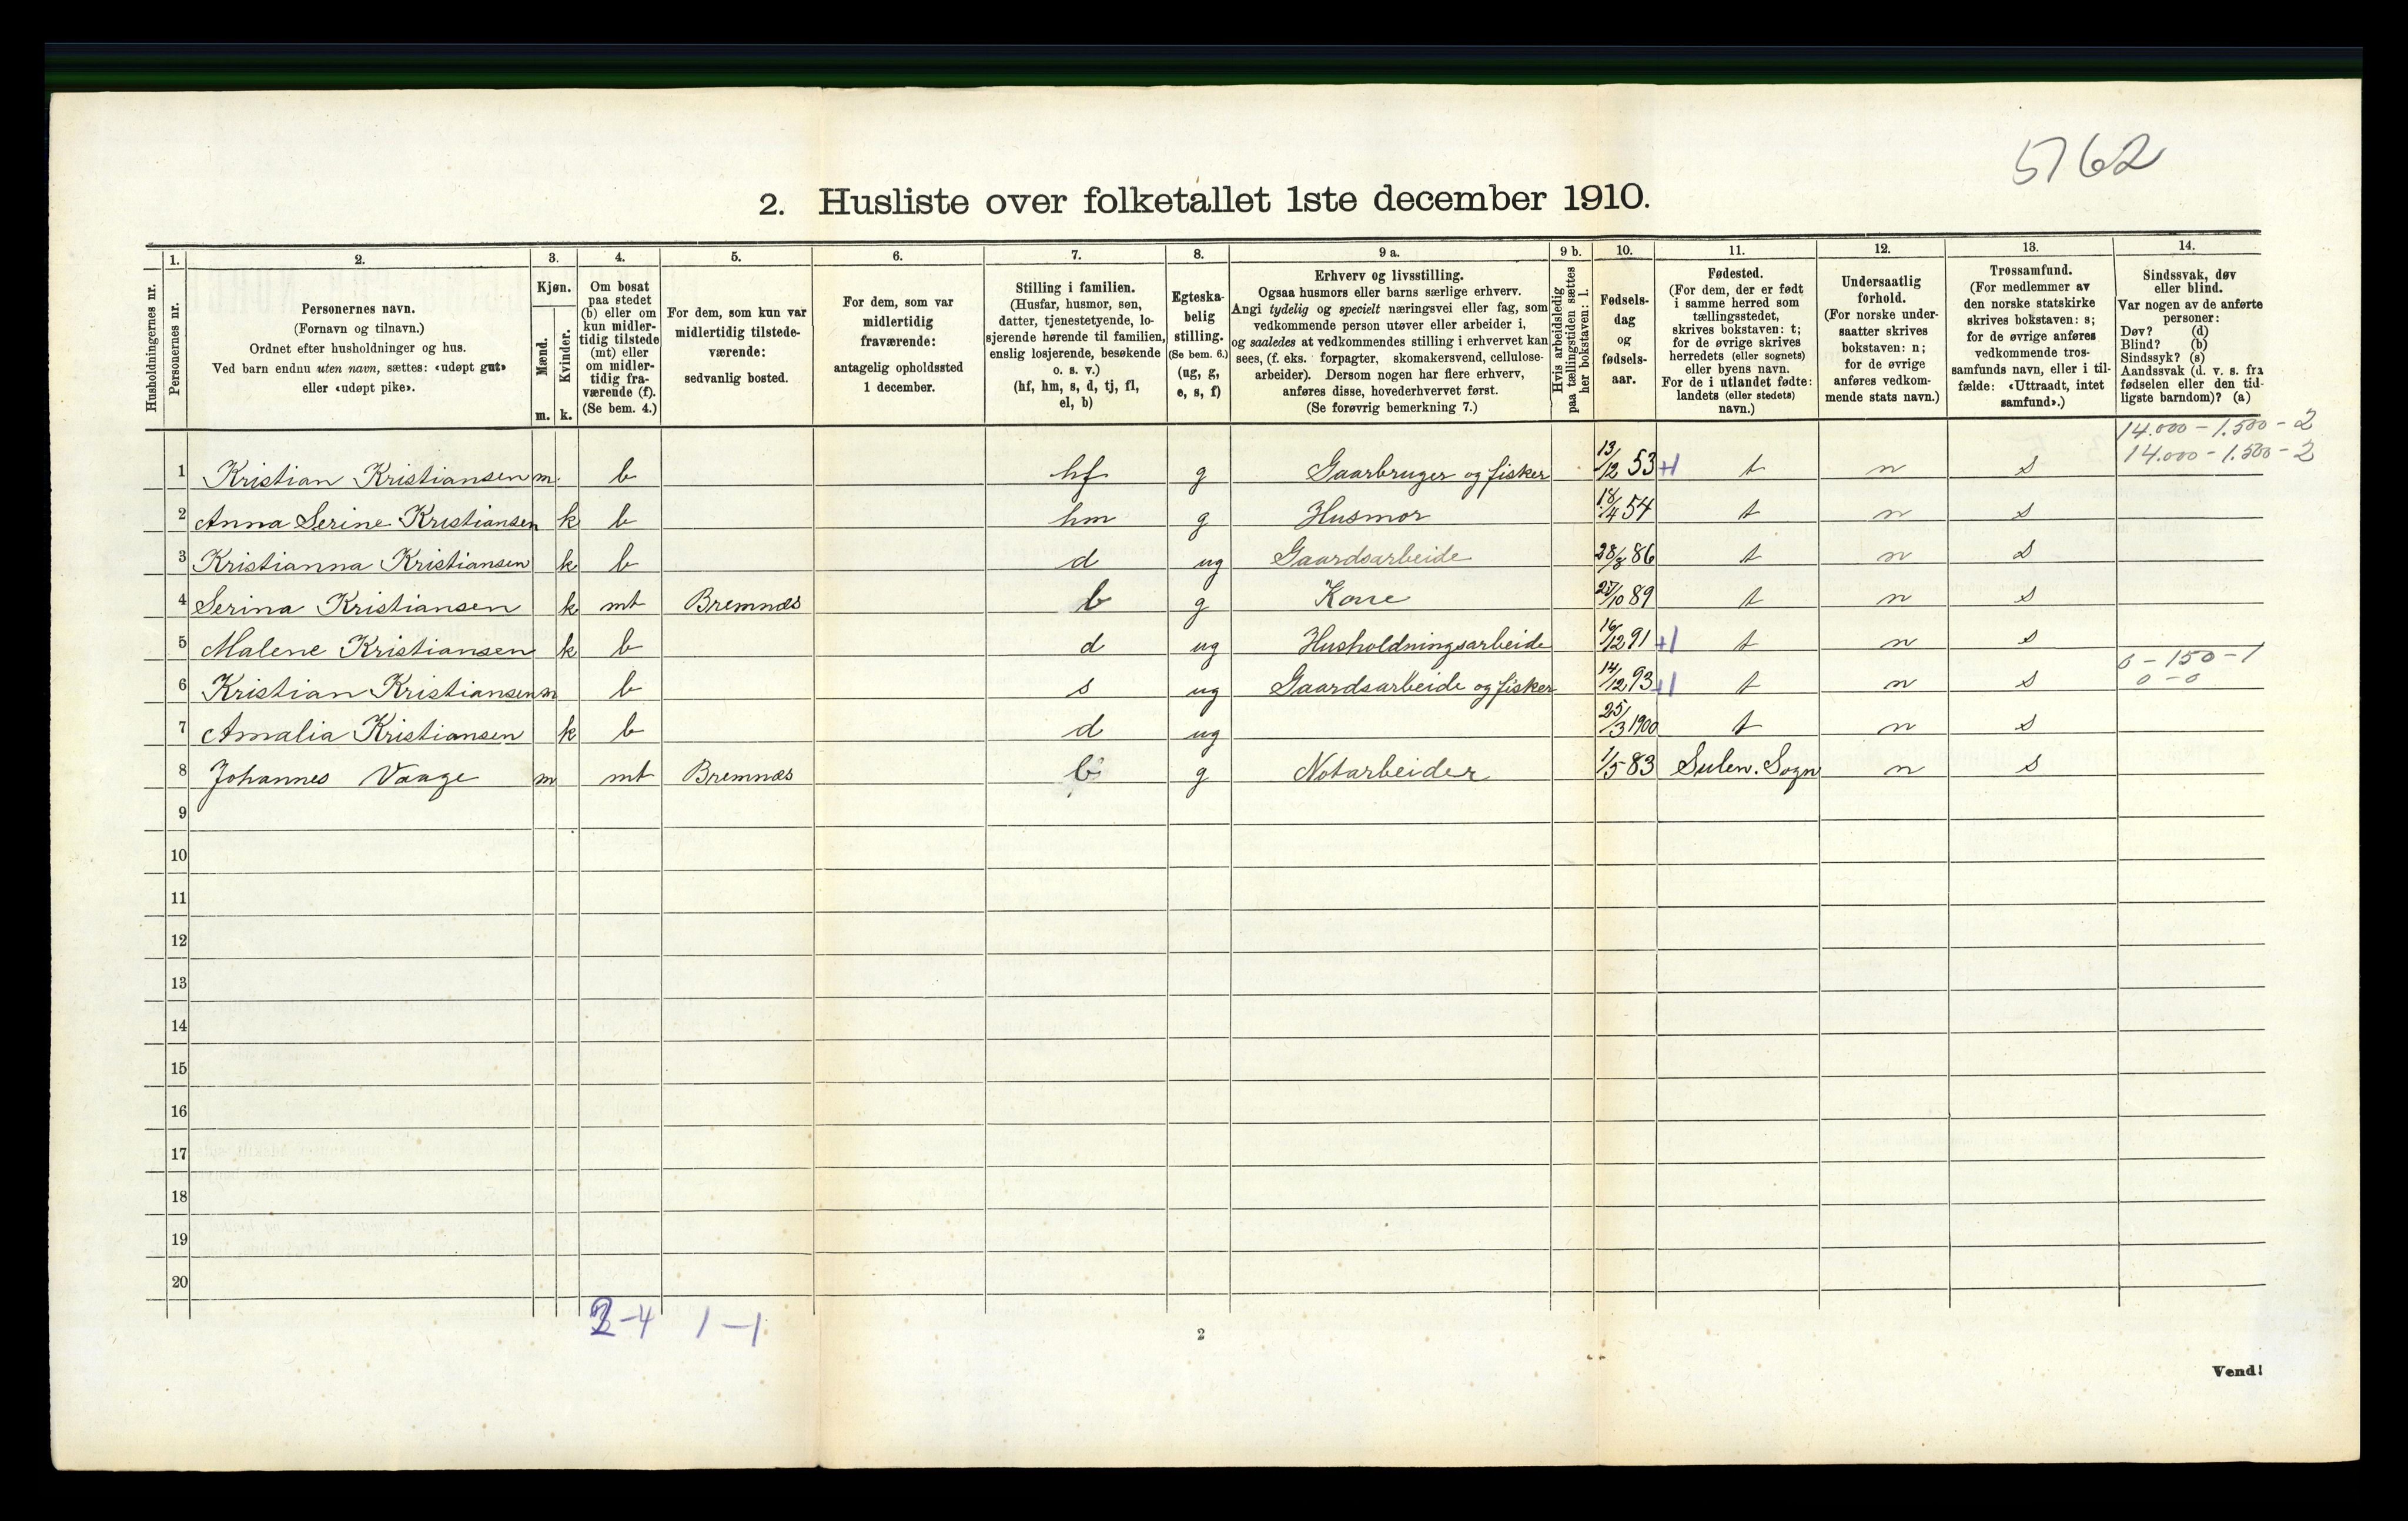 5762
2. Husliste over folketallet 1ste december 1910.
Husholdningernes nr.
1.
Personernes nr.
2.
Personernes navn.
(Fornavn og tilnavn.)
Ordnet efter husholdninger og hus.
Ved barn endnu uten navn, sættes: «udøpt gut»
eller «udøpt pike».
3.
Kjøn.
Mænd.
Kvinder.
m. k.
4.
Om bosat
paa stedet
(b) eller om
kun midler-
tidig tilstede
(mt) eller
om midler-
tidig fra-
værende (f).
(Se bem. 4.)
5.
For dem, som kun var
midlertidig tilstede-
værende:
sedvanlig bosted.
6.
For dem, som var
midlertidig
fraværende:
antagelig opholdssted
1 december.
7.
Stilling i familien.
(Husfar, husmor, søn,
datter, tjenestetyende, lo-
sjerende hørende til familien,
enslig losjerende, besøkende
o. s. v.)
(hf, hm, s, d, tj, fl,
el, b)
8.
Egteska-
belig
stilling.
(Se bem. 6.)
(ug, g,
e, s, f)
9 a.
Erhverv og livsstilling.
Ogsaa husmors eller barns særlige erhverv.
Angi tydelig og specielt næringsvei eller fag, som
vedkommende person utøver eller arbeider i,
og saaledes at vedkommendes stilling i erhvervet kan
sees, (f. eks. forpagter, skomakersvend, cellulose-
arbeider). Dersom nogen har flere erhverv,
anføres disse, hovederhvervet først.
(Se forøvrig bemerkning 7.)
9 b.
Hvis arbeidsledig
paa tællingstiden sættes
her bokstaven: l.
10.
Fødsels-
dag
og
fødsels-
aar.
11.
Fødested.
(For dem, der er født
i samme herred som
tællingsstedet,
skrives bokstaven: t;
for de øvrige skrives
herredets (eller sognets)
eller byens navn.
For de i utlandet fødte:
landets (eller stedets)
navn.)
12.
Undersaatlig
forhold.
(For norske under-
saatter skrives
bokstaven: n;
for de øvrige
anføres vedkom-
mende stats navn.)
13.
Trossamfund.
(For medlemmer av
den norske statskirke
skrives bokstaven: s;
for de øvrige anføres
vedkommende tros-
samfunds navn, eller i til-
fælde: «Uttraadt, intet
samfund».)
14.
Sindssvak, døv
eller blind.
Var nogen av de anførte
personer:
Døv? (d)
Blind? (b)
Sindssyk? (s)
Aandssvak (d. v. s. fra
fødselen eller den tid-
ligste barndom)? (a)
14.000 - 1.500 - 2
14.000 - 1.500 - 2
1 Kristian Kristiansen m. b hf g Gaarbruger og fisker 13/12 53 +1 t n s
2 Anna Serine Kristiansen k b hm g Husmor 18/4 54 t n s
3 Kristianna Kristiansen k b d ug Gaardsarbeide 28/8 86 t n s
4 Serina Kristiansen k mt Bremnæs b g Kone 27/10 89 t n s
5 Malene Kristiansen k b d ug Husholdningsarbeide 16/12 91 +1 t n s
0 - 150 - 1
6 Kristian Kristiansen m b s ug Gaardsarbeide og fisker 14/12 93 +1 t n s 0 - 0
7 Amalia Kristiansen k b d ug 25/3 1900 t n s
8 Johannes Vaage m mt Bremnæs b g Notarbeider 1/5 83 Sulen. Sogn n s
9
10
11
12
13
14
15
16
17
18
19
20
2-4 1-1
2
Vend!